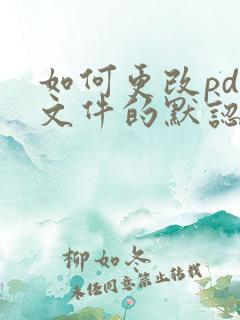 如何更改pd
文件的默認
柳如冬
未任同意禁止转载